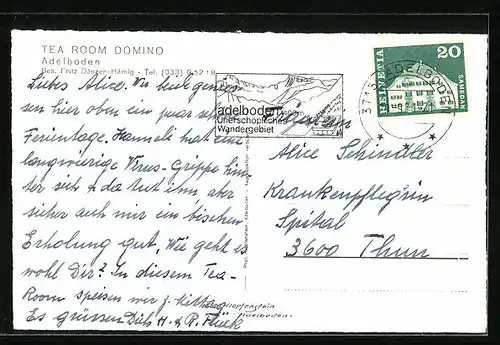 TEA ROOM DOMINO
Adelboden
Bes. Fritz Dänzer-Hämig - Tel. (033) 9 52 18
Liebe Alice. Wir geniessen
hier oben ein paar schöne
Ferientage. Hanneli hat eine
langwierige Virus-Grippe hin-
ter sich & da tut ihm aber
sicher auch mir ein bischen
Erholung gut. Wie geht es
wohl Dir? In diesem Tea-
Room speisen wir z. Mittag
Es grüssen Dich H. & R. Flück
adelboden
Unerschöpfliches
Wandergebiet
3715 ADELBODEN
HELVETIA
20
SAMEDAN
Alice Schindler
Krankenpfleg'rin
Spital
3600 Thun
Gyger
Klopfenstein
Adelboden